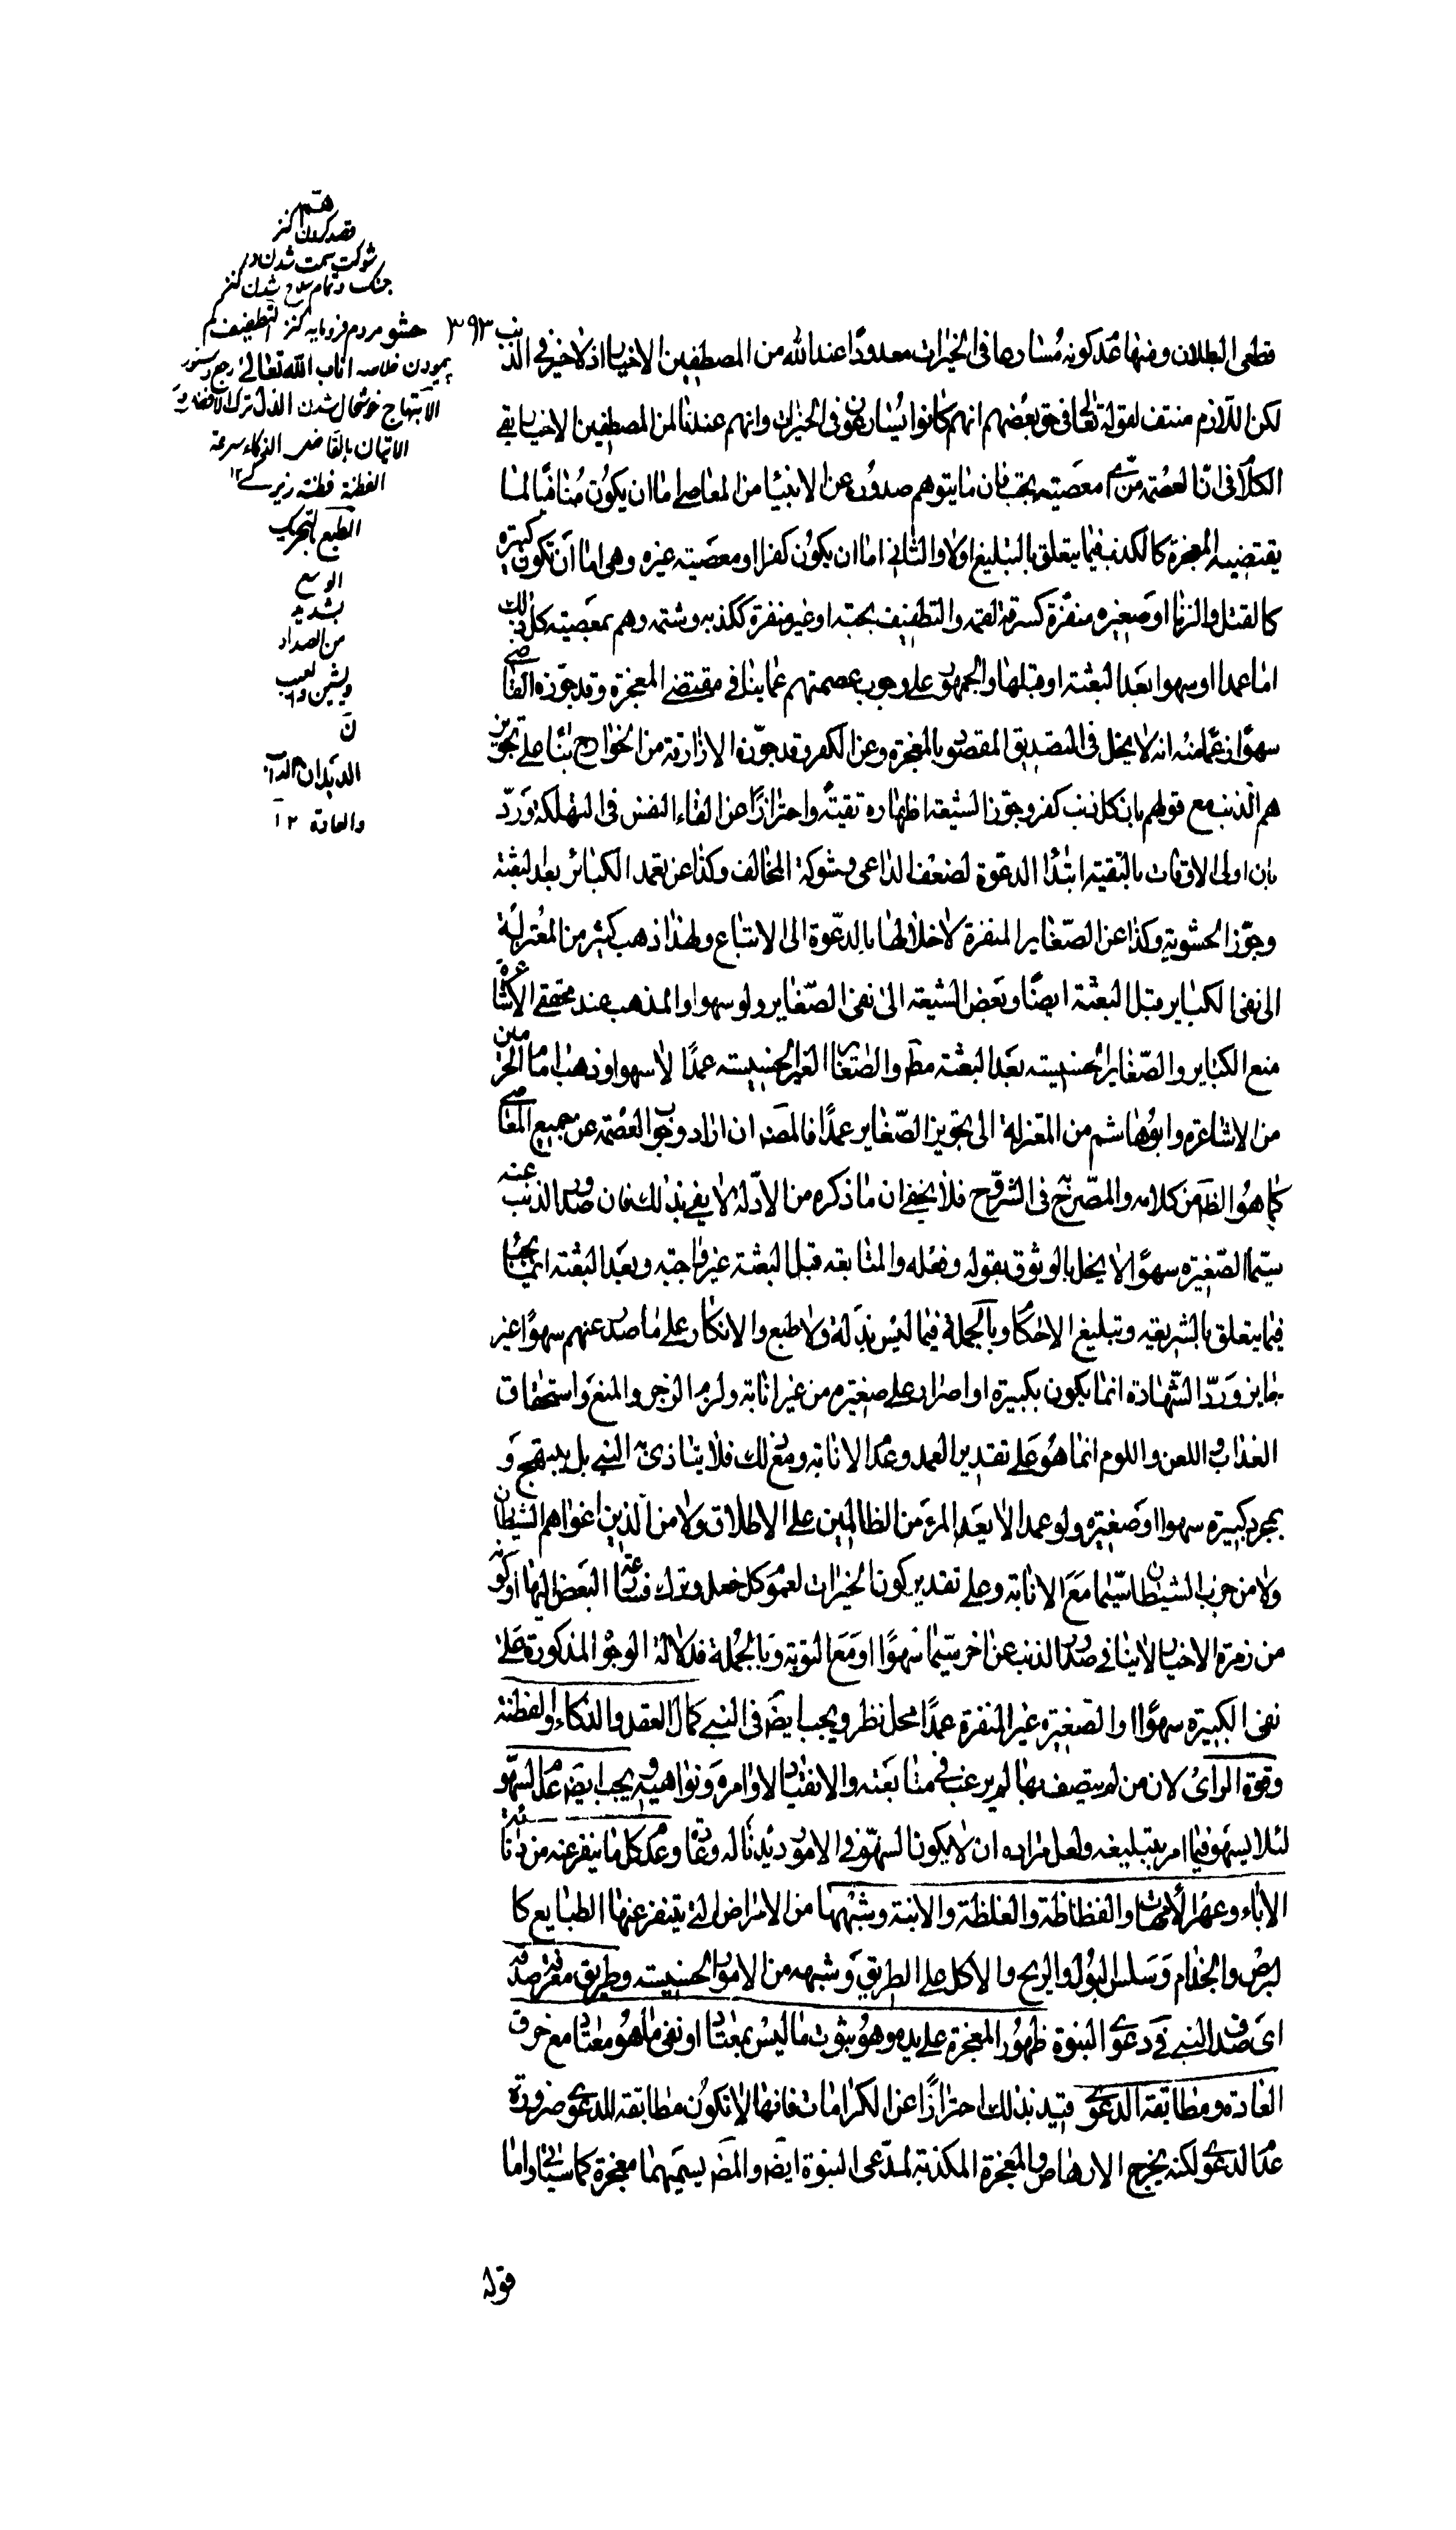 ٣٩٣
قطعى البطلان ومنها عدم كونه مسارعا فى الخيرات معدودا عند الله من المصطفين الاخيار اذ لا خير فى الذنب
لكن اللازم منتف لقوله تعالى فى حق بعضهم انهم كانوا يسارعون فى الخيرات وانهم عندنا لمن المصطفين الاخيار بقى
الكلام فى ان العصمة من اى معصيته يجب فان ما يتوهم صدوره عن الانبيا من المعاصى اما ان يكون منافيا لما
يقتضيه المعجزة كالكذب فيما يتعلق بالتبليغ اولا والثانى اما ان يكون كفرا او معصيته غيره وهى اما ان تكون كبيره
كالقتل والزنا او صغيره منفرة كسرقة لقمه والتطفيف بحبه او غير منفرة ككذبه وشتمه وهم بمعصيته كل ذلك
اما عمدا او سهوا بعد البعثته او قبلها والجمهور على وجوب عصمتهم عما ينافى مقتضى المعجزة وقد جوزه القاضى
سهوا زعما منه انه لا يخل فى التصديق المقصود بالمعجزة وعن الكفر وقد جوزه الازارقة من الخوارج بناء على تجويز
هم الذنب مع قولهم بان كل ذنب كفر وجوز الشيعة اظهاره تقية واحترازا عن القاء النفس فى التهلكة ورد
بان اولى الاوقات بالتقيه ابتدا الدعوة لضعف الداعى وشوكة المخالف وكذا عن تعمد الكبائر بعد البعثة
وجوز الحشوية وكذا عن الصغاير المنفرة لاخلالها بالدعوة الى الاتباع ولهذا ذهب كثير من المعتزلة
الى نفى الكباير قبل البعثة ايضا وبعض الشيعه الى نفى الصغاير ولو سهوا والمذهب عند محققى الاشاعرة
منع الكباير والصغاير الخسيسته بعد البعثة مط والصغاير الغير الخسيسته عمدا لا سهوا وذهب امام الحرمين
من الاشاعره وابو هاشم من المعتزلة الى تجويز الصغاير عمدا فالمصنه ان اراد وجوب العصمة عن جميع المعاصى
كما هو الظ من كلامه والمصرح به فى الشروح فلا يخفى ان ما ذكره من الادلة لا يفى بذلك فان صدور الذنب عنه
سيما الصغيره سهوا لا يخل بالوثوق بقوله وفعله والمتابعه قبل البعثة غير واجبه وبعد البعثه انما يجب
فيما يتعلق بالشريعه وتبليغ الاحكام وبالجملة فيما ليس بذلة ولا طبع والانكار على ما صدر عنهم سهوا غير
جايز ورد الشهادة انما يكون بكبيرة او اصرار على صغيره من غير انابة ولزوم الزجر والمنع واستحقاق
العذاب واللعن واللوم انما هو على تقدير العمد وعدم الانابه ومع ذلك فلا يتاذى به النبى بل يبتهج و
بمجرد كبيره سهوا او صغيره ولو عمدا لا يعد المرء من الظالمين على الاطلاق ولا من الذين اغواهم الشيطان
ولا من حزب الشيطان سيما مع الانابة وعلى تقدير كون الخيرات لعموم كل فعل وترك فمسارعة البعض اليها او كونه
من زمرة الاخيار لا ينافى صدور الذنب عن اخر سيما سهوا او مع التوبة وبالجملة فدلالة الوجوه المذكورة على
نفى الكبيره سهوا او الصغيره غير المنفرة عمدا محل نظر ويجب ايضه فى النبى كمال العقل والذكاء والفطنة
وقوة الراى لان من لم يتصف بها لم يرغب فى متابعته والانقياد لاوامره ونواهيه ويجب ايضه عدم السهو
لئلا يسهو فيما امر بتبليغه ولعل مراده ان لا يكون السهو فى الامور ديدنا له وعادة وعدم كل ما ينفر عنه من دناءة
الاباء وعهر الامهات والفظاظة والغلظة والابنة وشبهها من الامراض التى يتنفر عنها الطبايع كا
لبرص والجذام وسلس البول والريح والاكل على الطريق وشبهه من الامور الخسيسته وطريق معرفة صدقه
اى صدق النبى فى دعوى النبوة ظهور المعجزة على يده وهو ثبوت ما ليس بمعتاد او نفى ما هو معتاد مع خرق
العادة ومطابقة الدعوى قيد بذلك احترازا عن الكرامات فانها لا تكون مطابقه للدعوى ضرورة
عدم الدعوى لكنه يخرج الارهاص والمعجزة المكذبة لمدعى النبوة ايضه والمصنه يسميهما معجزة كما سياتى واما
قوله
هم
قصد كردن كنز
شوكت سخت شدن در
جنك وتمام سلاح شدن كنز
حشو مردم فرومايه كنز التطفيف كم
پيمودن خلاصه اناب الله تعالى رجع
الابتهاج خوشحال شدن
سرعة
الفطنة فطنة زيركى ١٢
الطبع بالتحريك
الوسخ
لشديد
من الصداء
ويشين
ن
الديدان الداب
والعادة ١٢